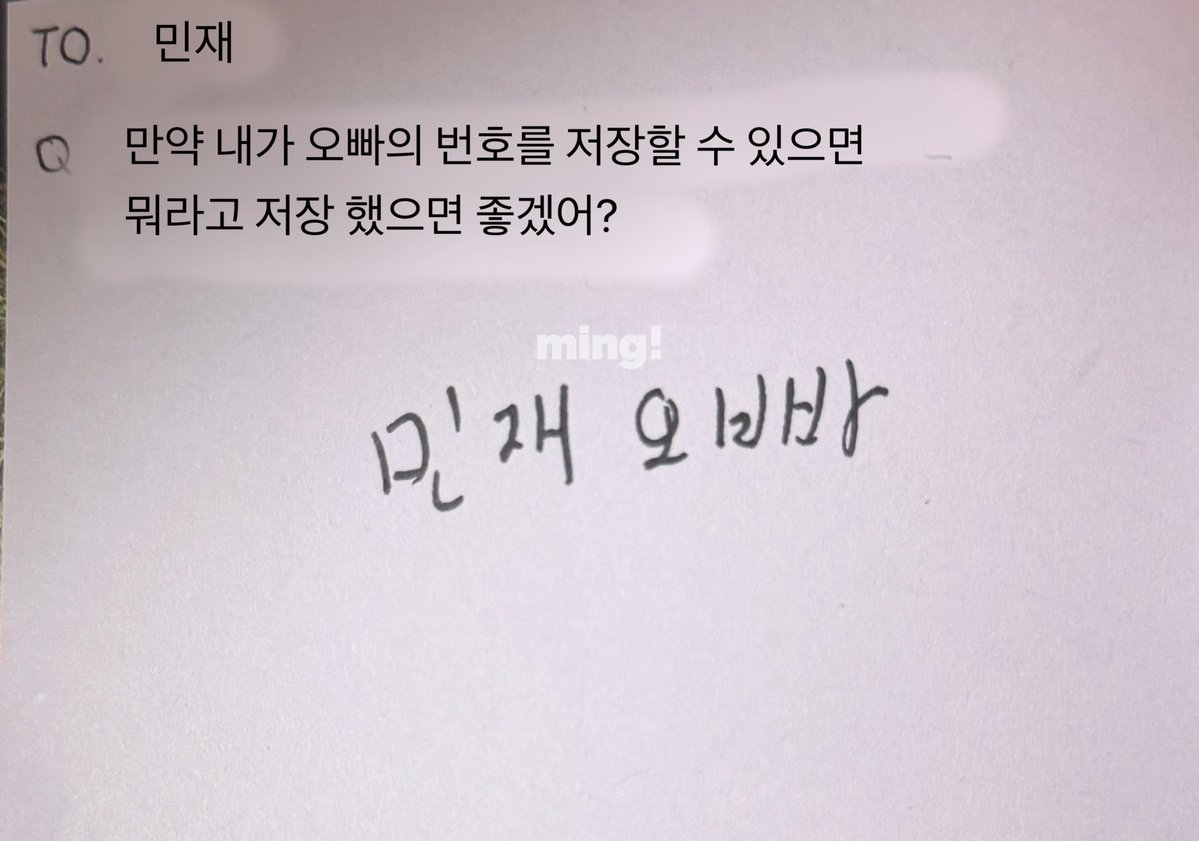 TO. 민재
Q 만약 내가 오빠의 번호를 저장할 수 있으면
뭐라고 저장 했으면 좋겠어?
ming!
민재 오빠